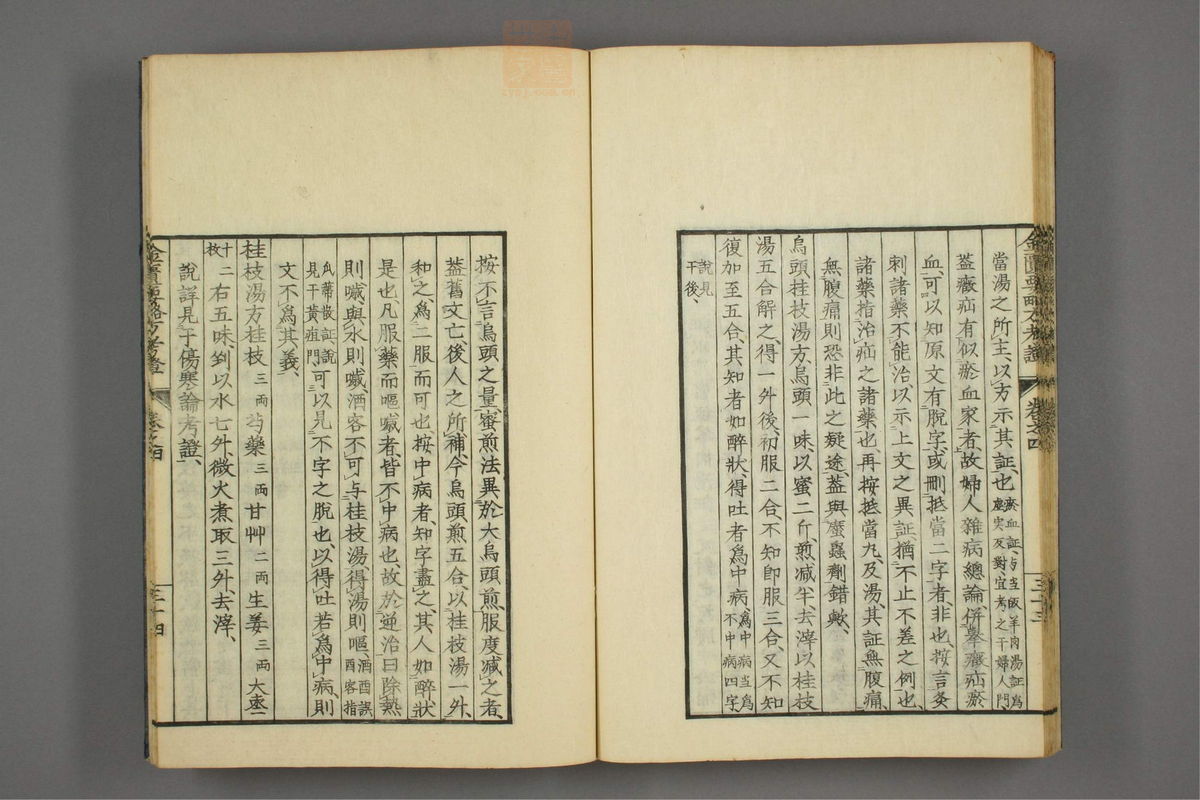 金匱要略方考證 卷之四 三十三
當湯之所主、以方示其証、也瘀血証、与当皈羊肉湯証爲虗実反対宜考之于婦人門、
蓋癥疝有似瘀血家者、故婦人雜病總論、併擧癥疝瘀
血、可以知原文有脫字、或刪抵當二字者非也、按言灸
刺諸藥不能治、以示上文之異証、猶不止不差之例也、
諸藥指治疝之諸藥也、再按抵當丸、及湯、其証無腹痛、
無腹痛則恐非此之疑途、蓋與䗪蟲劑錯歟、
烏頭桂枝湯方、烏頭一味、以蜜二斤、煎減半、去滓以桂枝
湯五合解之、得一升後、初服二合不知卽服三合、又不知
復加至五合、其知者如醉狀、得吐者爲中病、爲中病当爲不中病四字
說見于後、
按不言烏頭之量、蜜煎法異於大烏頭煎、服度減之者、
蓋舊文亡、後人之所補、今烏頭煎五合、以桂枝湯一升、
和之、爲二服而可也、按中病者、知字盡之、其人如醉狀
是也、凡服藥而嘔噦者、皆不中病也、故於逆治曰除熱
則噦、與水則噦、酒客不可与桂枝湯、得湯則嘔、酒酉誤酉客指
瓜蒂散証、說見于黃疸門、可以見不字之脫也、以得吐若爲中病、則
文不爲其義、
桂枝湯方桂枝三両芍藥三両甘艸二両生姜三両大棗一
十二枚右五味、剉以水七升、微火煮取三升、去滓、
說詳見于傷寒論考證、
金匱要略方考證 卷之四 三十四